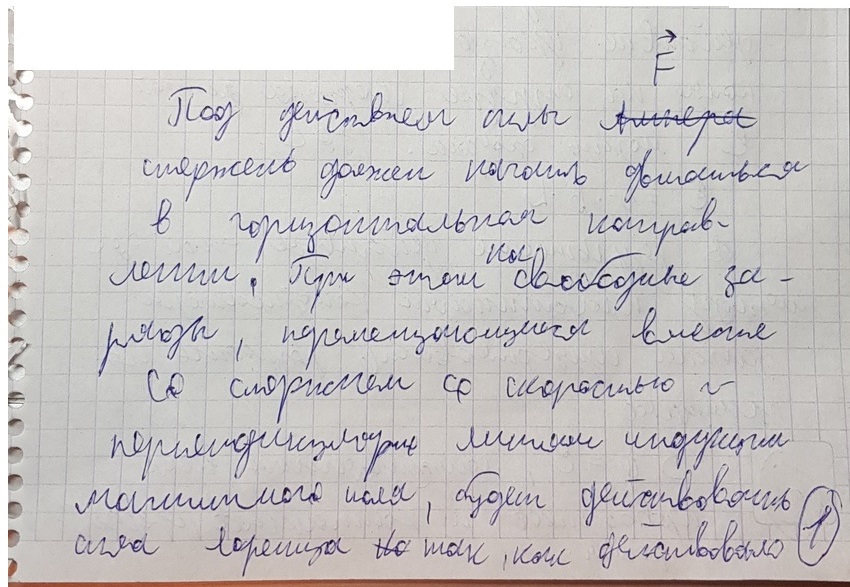 F
Под действием силы Ампера
стержень должен начать двигаться
в горизонтальном направ-
лении. При этом на свободные за-
ряды, перемещающиеся вместе
со стержнем со скоростью v
перпендикулярно линиям индукции
магнитного поля, будет действовать
сила Лоренца так, как действовало
1